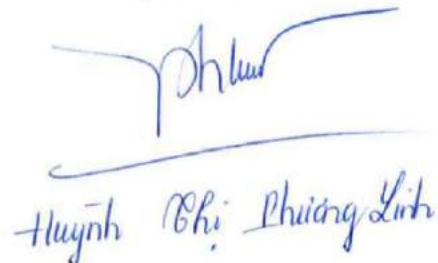 Huỳnh Thị Phương Linh